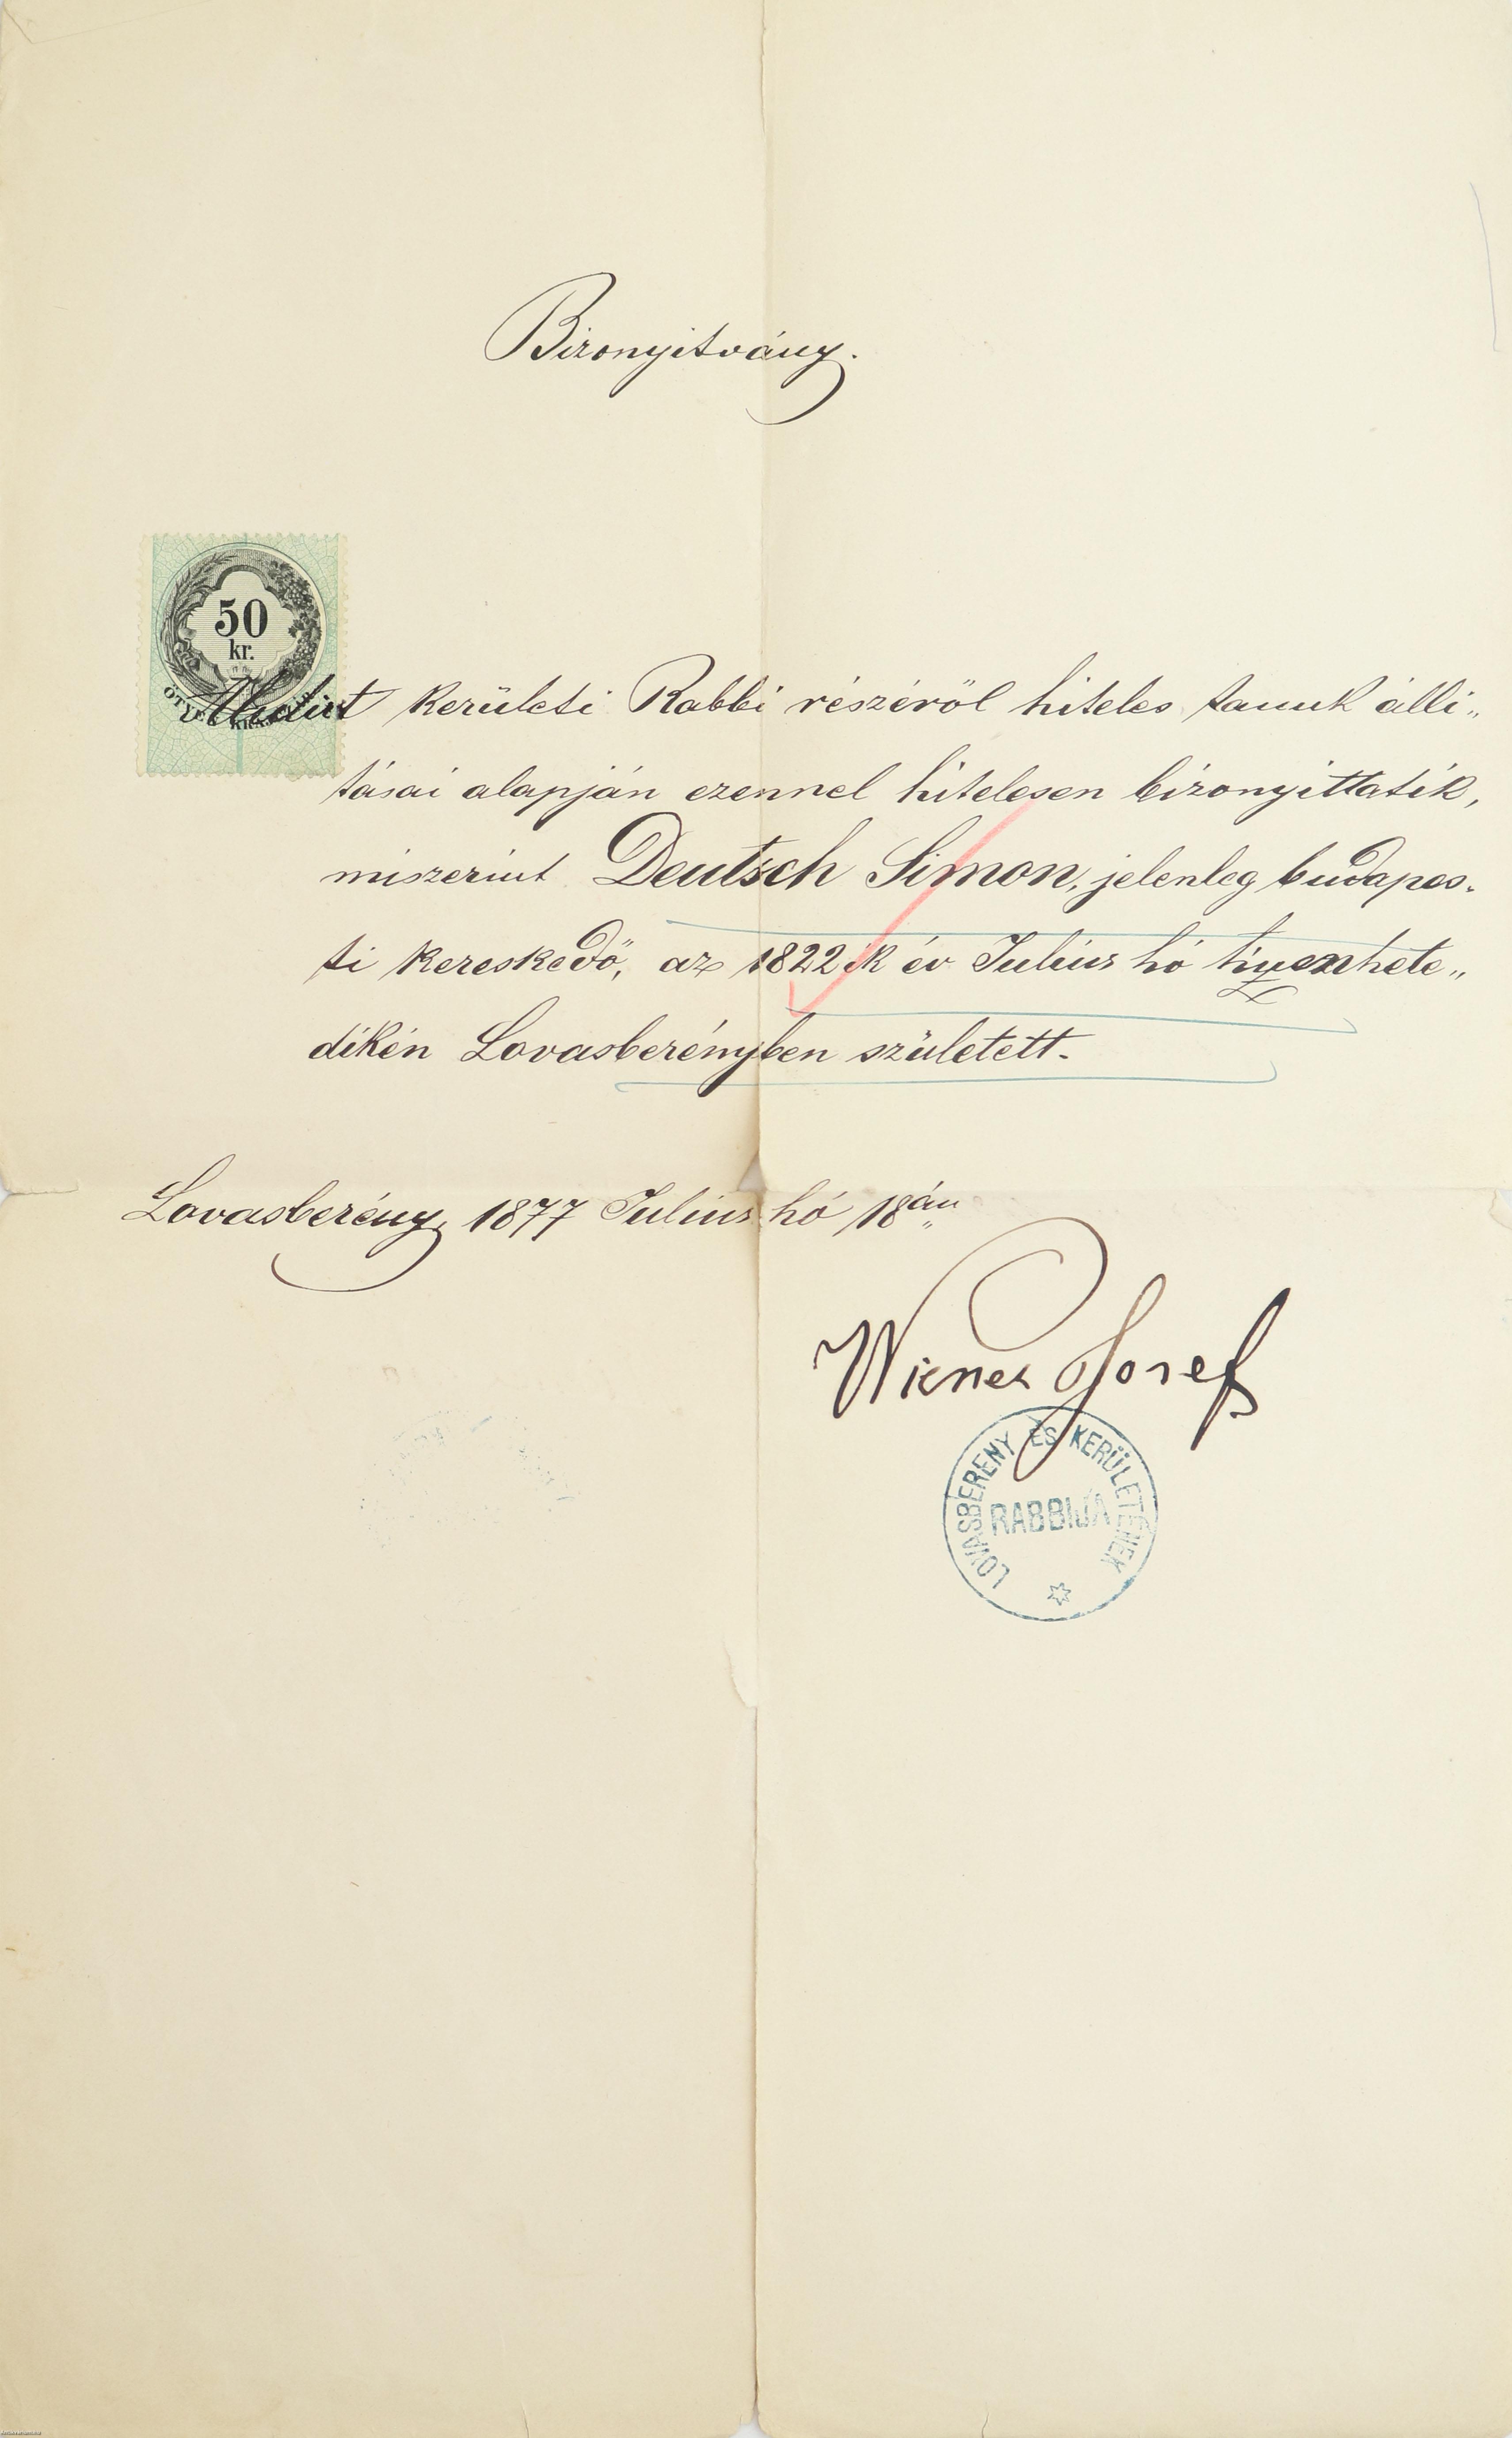 Bizonyitvány.
50
kr.
Alulirt kerületi Rabbi részéről hiteles tanuk álli„
tásai alapján ezennel hitelesen bizonyittatik,
miszerint Deutsch Simon, jelenleg budapes-
ti kereskedő, az 1822ik év Julius hó tizenhete„
dikén Lovasberényben született.
Lovasberény, 1877 Julius hó 18án
Wiener Josef
LOVASBERÉNY ÉS KERÜLETÉNEK
RABBIJA